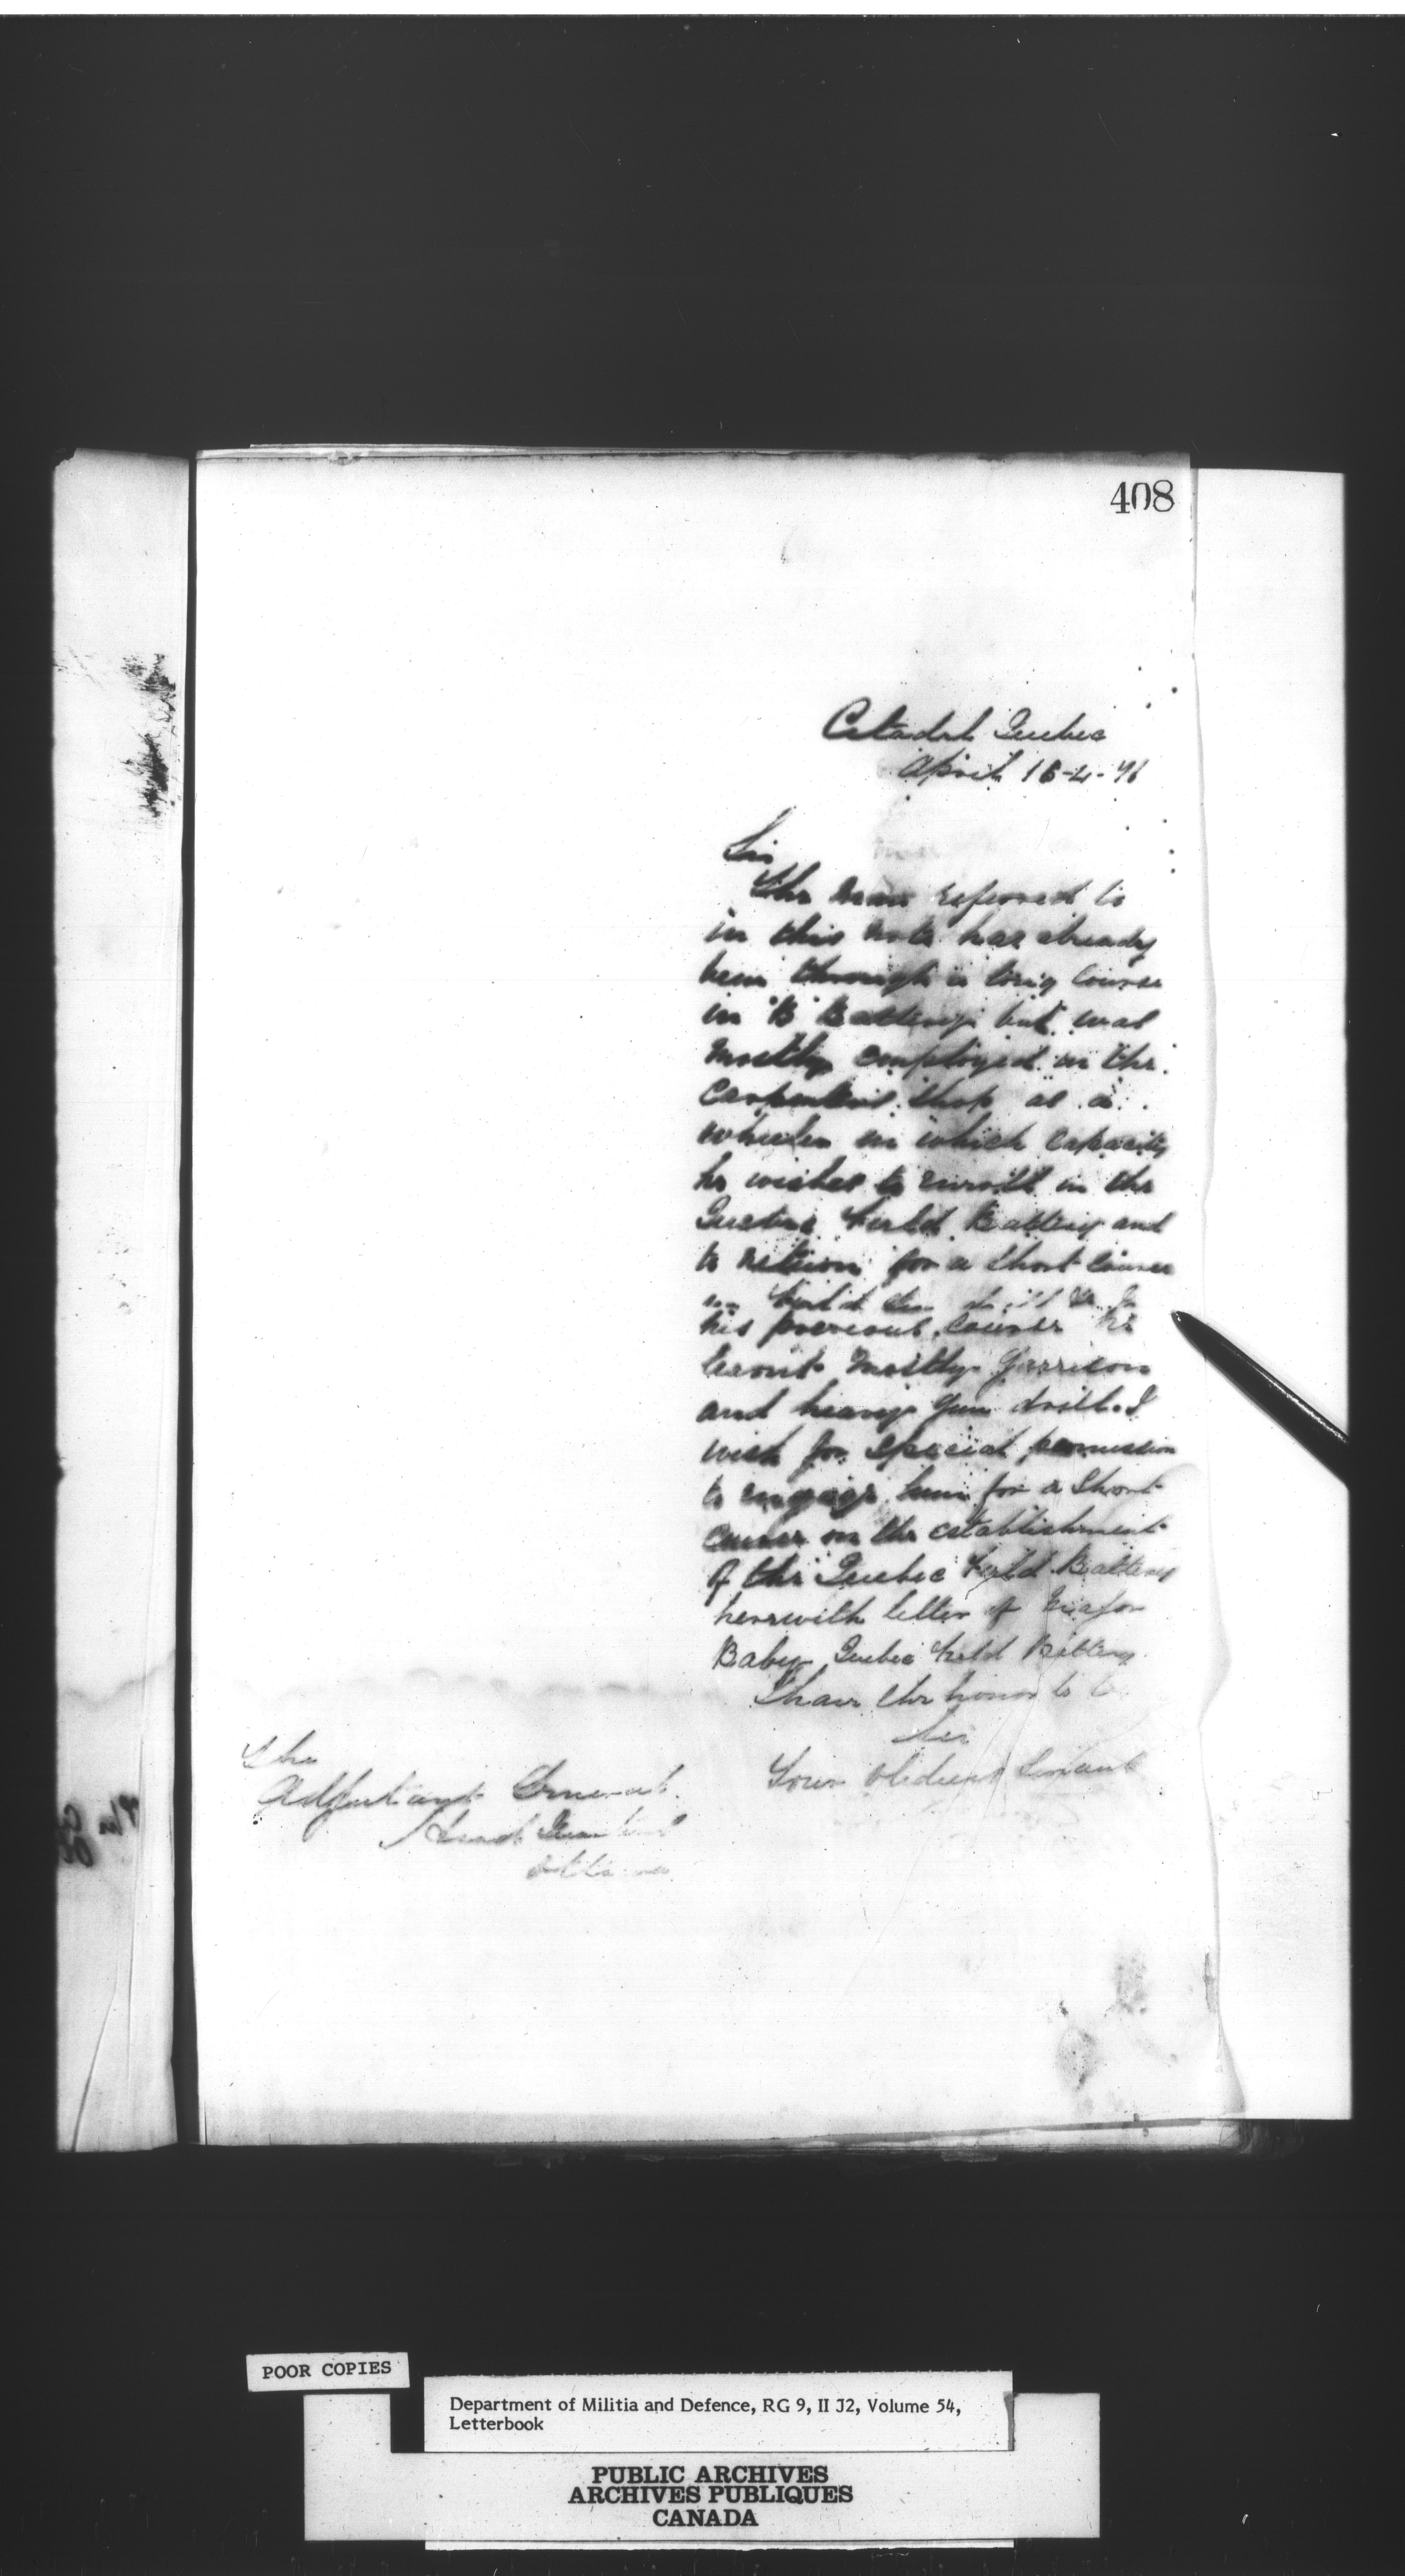 408
Citadel Quebec
April 16-4-96
Sir
The man referred to
in this note has already
been through a long Course
in "B" Battery but was
mostly employed in the
Carpenters Shop as a
wheeler in which capacity
he wishes to enroll in the
Quebec Field Battery and
to return for a short course
in Field Gun drill
his previous Course he
learnt mostly Garrison
and heavy Gun drill. I
wish for special permission
to engage him for a Short
course on the establishment
of the Quebec Field Battery
herewith letter of Major
Baby Quebec Field Battery
I have the honor to be
Sir
Your Obedient Servant
The
Adjutant General
Head Quarters
Ottawa
POOR COPIES
Department of Militia and Defence, RG 9, II J2, Volume 54,
Letterbook
PUBLIC ARCHIVES
ARCHIVES PUBLIQUES
CANADA